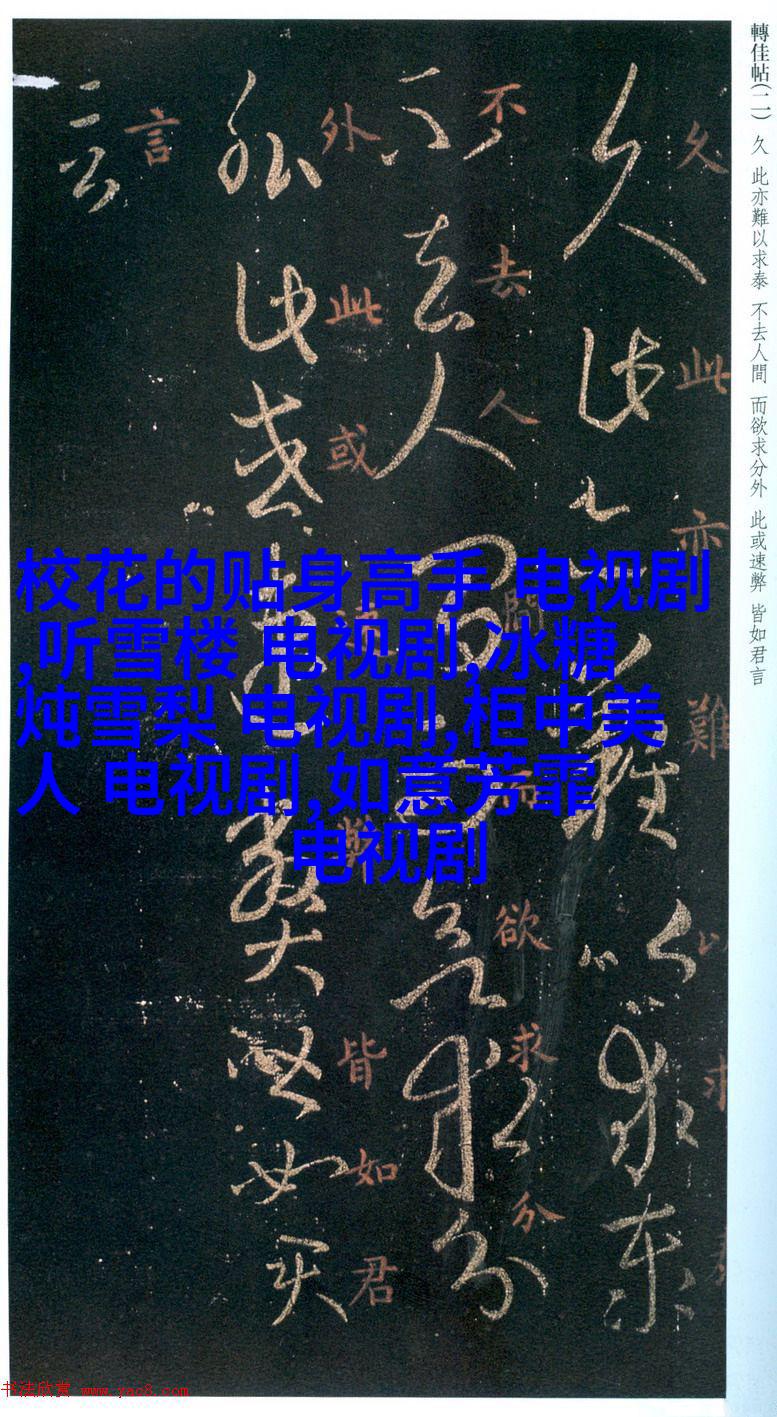 轉佳帖(二) 久 此亦難以求泰 不去人間 而欲求分外 此或速弊 皆如君言
久此亦難以求泰
久此亦難以求
不去人間而欲求分
不去人間而欲求分
外此或速弊皆如君
外此或速弊大皆如君
言
言
校花的贴身高手 电视剧
,听雪楼 电视剧,冰糖
炖雪梨 电视剧,柜中美
人 电视剧,如意芳霏
电视剧
书法欣赏 www.yac8.com